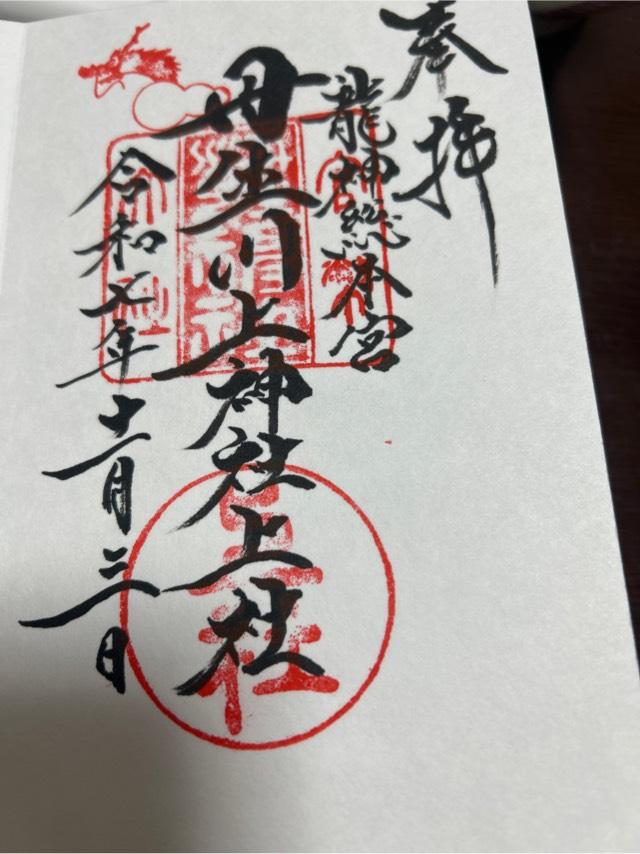 奉拝
龍神総本宮
丹生川上神社上社
令和七年十一月三日